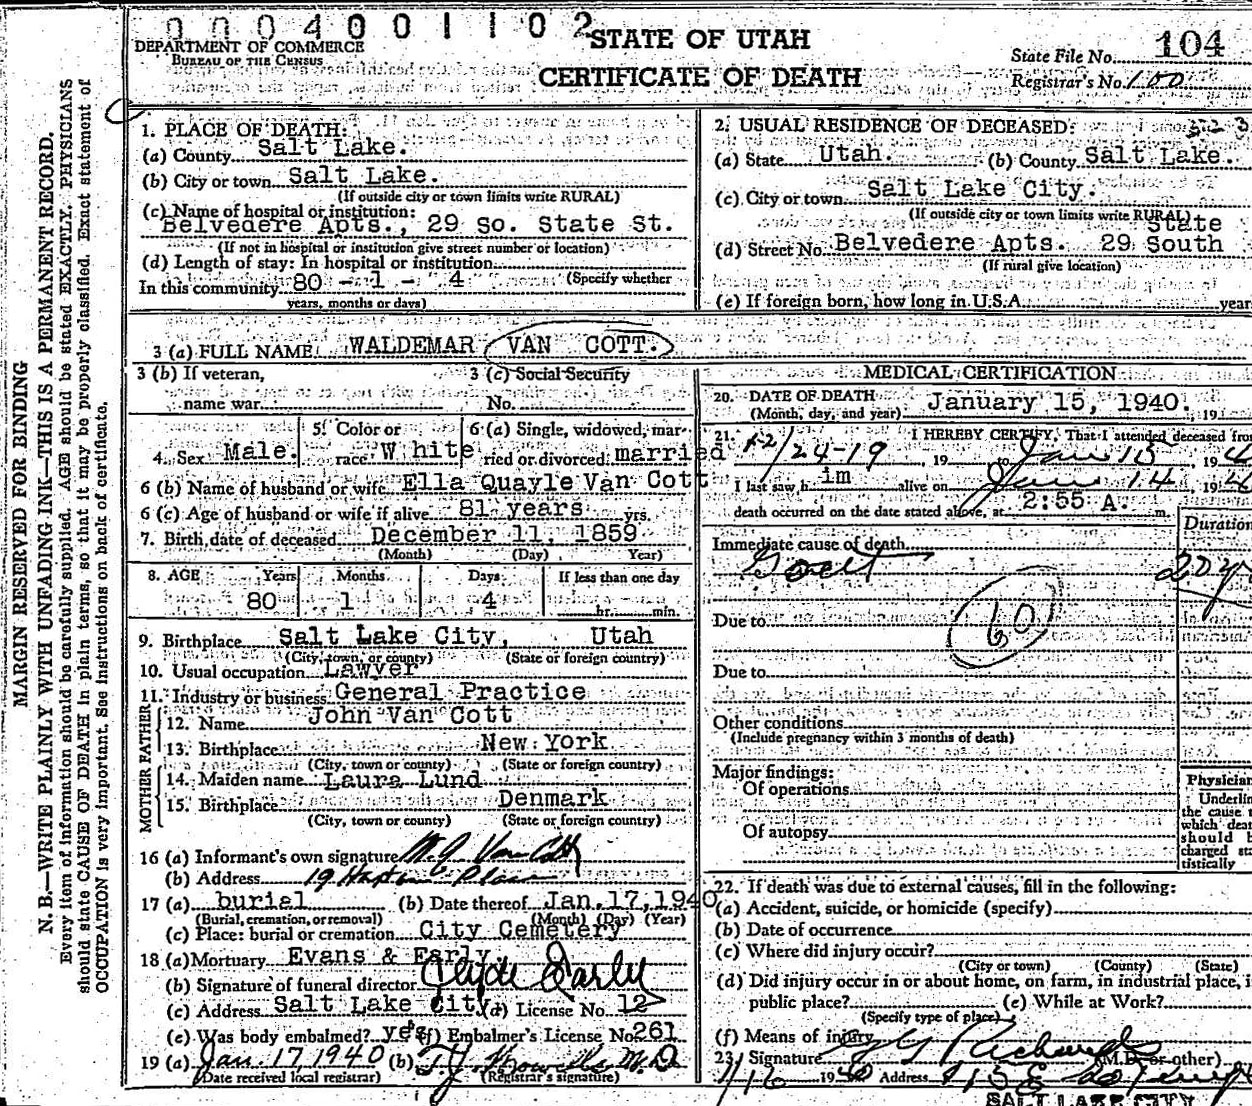 0004001102
DEPARTMENT OF COMMERCE
BUREAU OF THE CENSUS
STATE OF UTAH
CERTIFICATE OF DEATH
State File No. 104
Registrar's No. 100
MARGIN RESERVED FOR BINDING
N. B.—WRITE PLAINLY WITH UNFADING INK—THIS IS A PERMANENT RECORD.
Every item of information should be carefully supplied. AGE should be stated EXACTLY. PHYSICIANS
should state CAUSE OF DEATH in plain terms, so that it may be properly classified. Exact statement of
OCCUPATION is very important. See instructions on back of certificate.
1. PLACE OF DEATH:
(a) County Salt Lake.
(b) City or town Salt Lake.
(If outside city or town limits write RURAL)
(c) Name of hospital or institution:
Belvedere Apts., 29 So. State St.
(If not in hospital or institution give street number or location)
(d) Length of stay: In hospital or institution
(Specify whether
In this community 80 - 1 - 4
years, months or days)
2. USUAL RESIDENCE OF DECEASED:
(a) State Utah. (b) County Salt Lake.
(c) City or town Salt Lake City.
(If outside city or town limits write RURAL)
State
(d) Street No. Belvedere Apts. 29 South
(If rural give location)
(e) If foreign born, how long in U.S.A. year
3 (a) FULL NAME WALDEMAR VAN COTT.
3 (b) If veteran,
name war
3 (c) Social Security
No.
4. Sex Male.
5. Color or
race White
6 (a) Single, widowed, mar-
ried or divorced married
6 (b) Name of husband or wife Ella Quayle Van Cott
6 (c) Age of husband or wife if alive 81 years yrs.
7. Birth date of deceased December 11, 1859
(Month) (Day) Year)
8. AGE Years Months Days If less than one day
80 1 4 hr. min.
9. Birthplace Salt Lake City, Utah
(City, town, or county) (State or foreign country)
10. Usual occupation Lawyer
11. Industry or business General Practice
FATHER
12. Name John Van Cott
13. Birthplace New York
(City, town or county) (State or foreign country)
MOTHER
14. Maiden name Laura Lund
15. Birthplace Denmark
(City, town or county) (State or foreign country)
16 (a) Informant's own signature Van Cott
(b) Address 19 Place
17 (a) burial (b) Date thereof Jan. 17, 1940
(Burial, cremation, or removal) (Month) (Day) (Year)
(c) Place: burial or cremation City Cemetery
18 (a) Mortuary Evans & Early
(b) Signature of funeral director Clyde Early
(c) Address Salt Lake City (d) License No. 12
(e) Was body embalmed? yes (f) Embalmer's License No. 261
19 (a) Jan. 17, 1940 (b) M.D
(Date received local registrar) (Registrar's signature)
MEDICAL CERTIFICATION
20. DATE OF DEATH January 15, 1940.
(Month, day, and year) 19
21. I HEREBY CERTIFY, That I attended deceased from
12/24-19, 19 to Jan 15, 194
I last saw him alive on Jan 14, 194
death occurred on the date stated above, at 2:55 A. m.
Duration
Immediate cause of death
Gout 20 y
Due to
60
Due to
Other conditions
(Include pregnancy within 3 months of death)
Major findings:
Of operations
Of autopsy
Physician
Underlin
the cause
which dea
should b
charged sta
tistically
22. If death was due to external causes, fill in the following:
(a) Accident, suicide, or homicide (specify)
(b) Date of occurrence
(c) Where did injury occur?
(City or town) (County) (State)
(d) Did injury occur in or about home, on farm, in industrial place, i
public place? (e) While at Work?
(Specify type of place)
(f) Means of injury
23. Signature G G Richards (M.D. or other)
1/16 1940 Address 115 E
SALT LAKE CITY